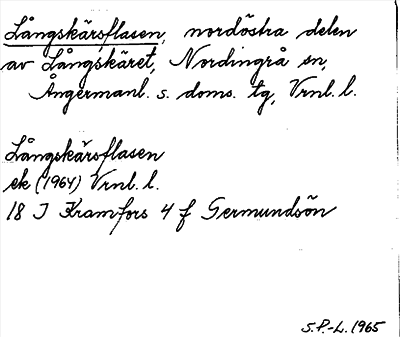 Långskärsflasen, nordöstra delen
av Långskäret, Nordingrå sn,
Ångermanl. s. doms. tg, Vrnl. l.
Långskärsflasen
ek (1964) Vrnl. l.
18 J Kramfors 4 f Germundsön
S.P.-L. 1965